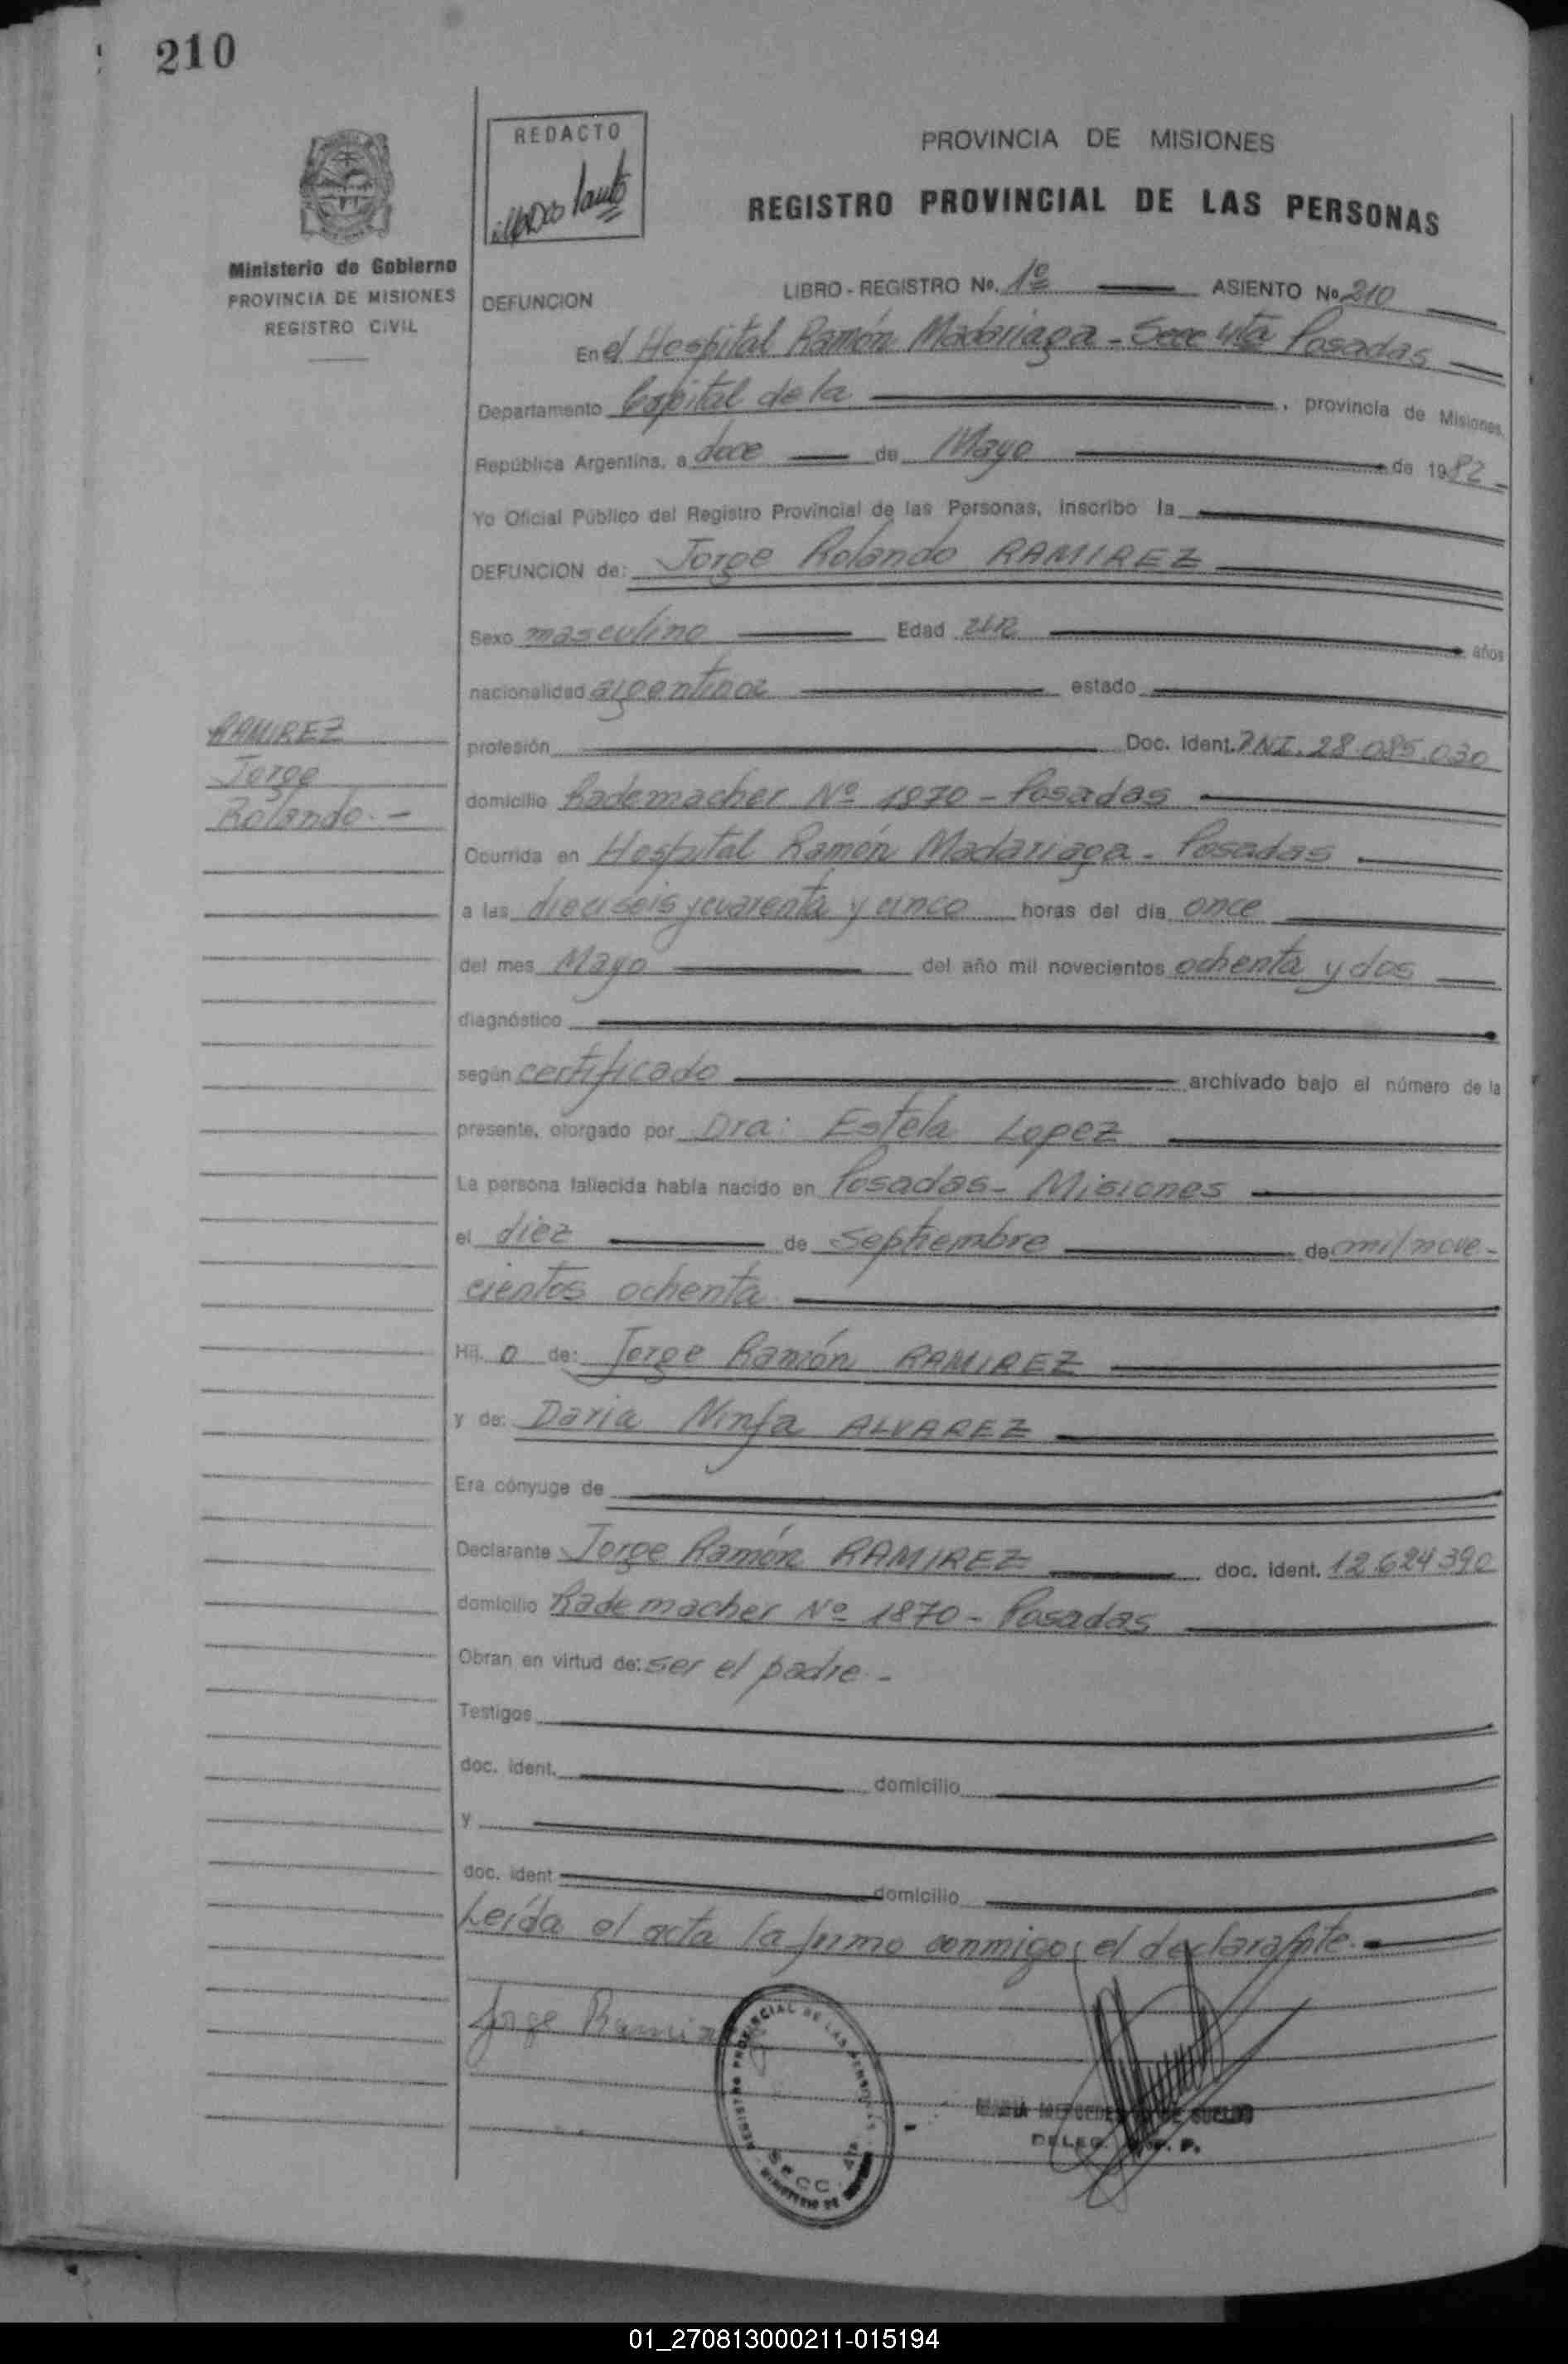 210
REDACTO
PROVINCIA DE MISIONES
REGISTRO PROVINCIAL DE LAS PERSONAS
Ministerio de Gobierno
PROVINCIA DE MISIONES
REGISTRO CIVIL
DEFUNCION
LIBRO - REGISTRO No. 1º ASIENTO No 210
En el Hospital Ramón Madariaga - Secc 4ta Posadas
Departamento Capital de la , provincia de Misiones,
República Argentina, a doce de Mayo de 1982 -
Yo Oficial Público del Registro Provincial de las Personas, inscribo la
DEFUNCION de: Jorge Rolando RAMIREZ
Sexo masculino Edad un años
nacionalidad argentina estado
RAMIREZ
Jorge
Rolando. -
profesión Doc. Ident. DNI. 28.085.030
domicilio Rademacher Nº 1870 - Posadas
Ocurrida en Hospital Ramón Madariaga - Posadas
a las dieciseis y cuarenta y cinco horas del día once
del mes Mayo del año mil novecientos ochenta y dos
diagnóstico
según certificado archivado bajo el número de la
presente, otorgado por Dra: Estela Lopez
La persona fallecida había nacido en Posadas - Misiones
el diez de Septiembre de mil nove-
cientos ochenta
Hij o de: Jorge Ramón RAMIREZ
y de: Daria Ninfa ALVAREZ
Era cónyuge de
Declarante Jorge Ramón RAMIREZ doc. ident. 12.624.390
domicilio Rademacher Nº 1870 - Posadas
Obran en virtud de: ser el padre. -
Testigos
doc. ident. domicilio
y
doc. ident domicilio
Leída el acta la firmo conmigo el declarante. -
Jorge Ramirez
REGISTRO PROVINCIAL DE LAS PERSONAS
SECC. 4ta
MINISTERIO DE
MARIA MERCEDES DE SUELDO
DELEG. R. P. P.
01_270813000211-015194